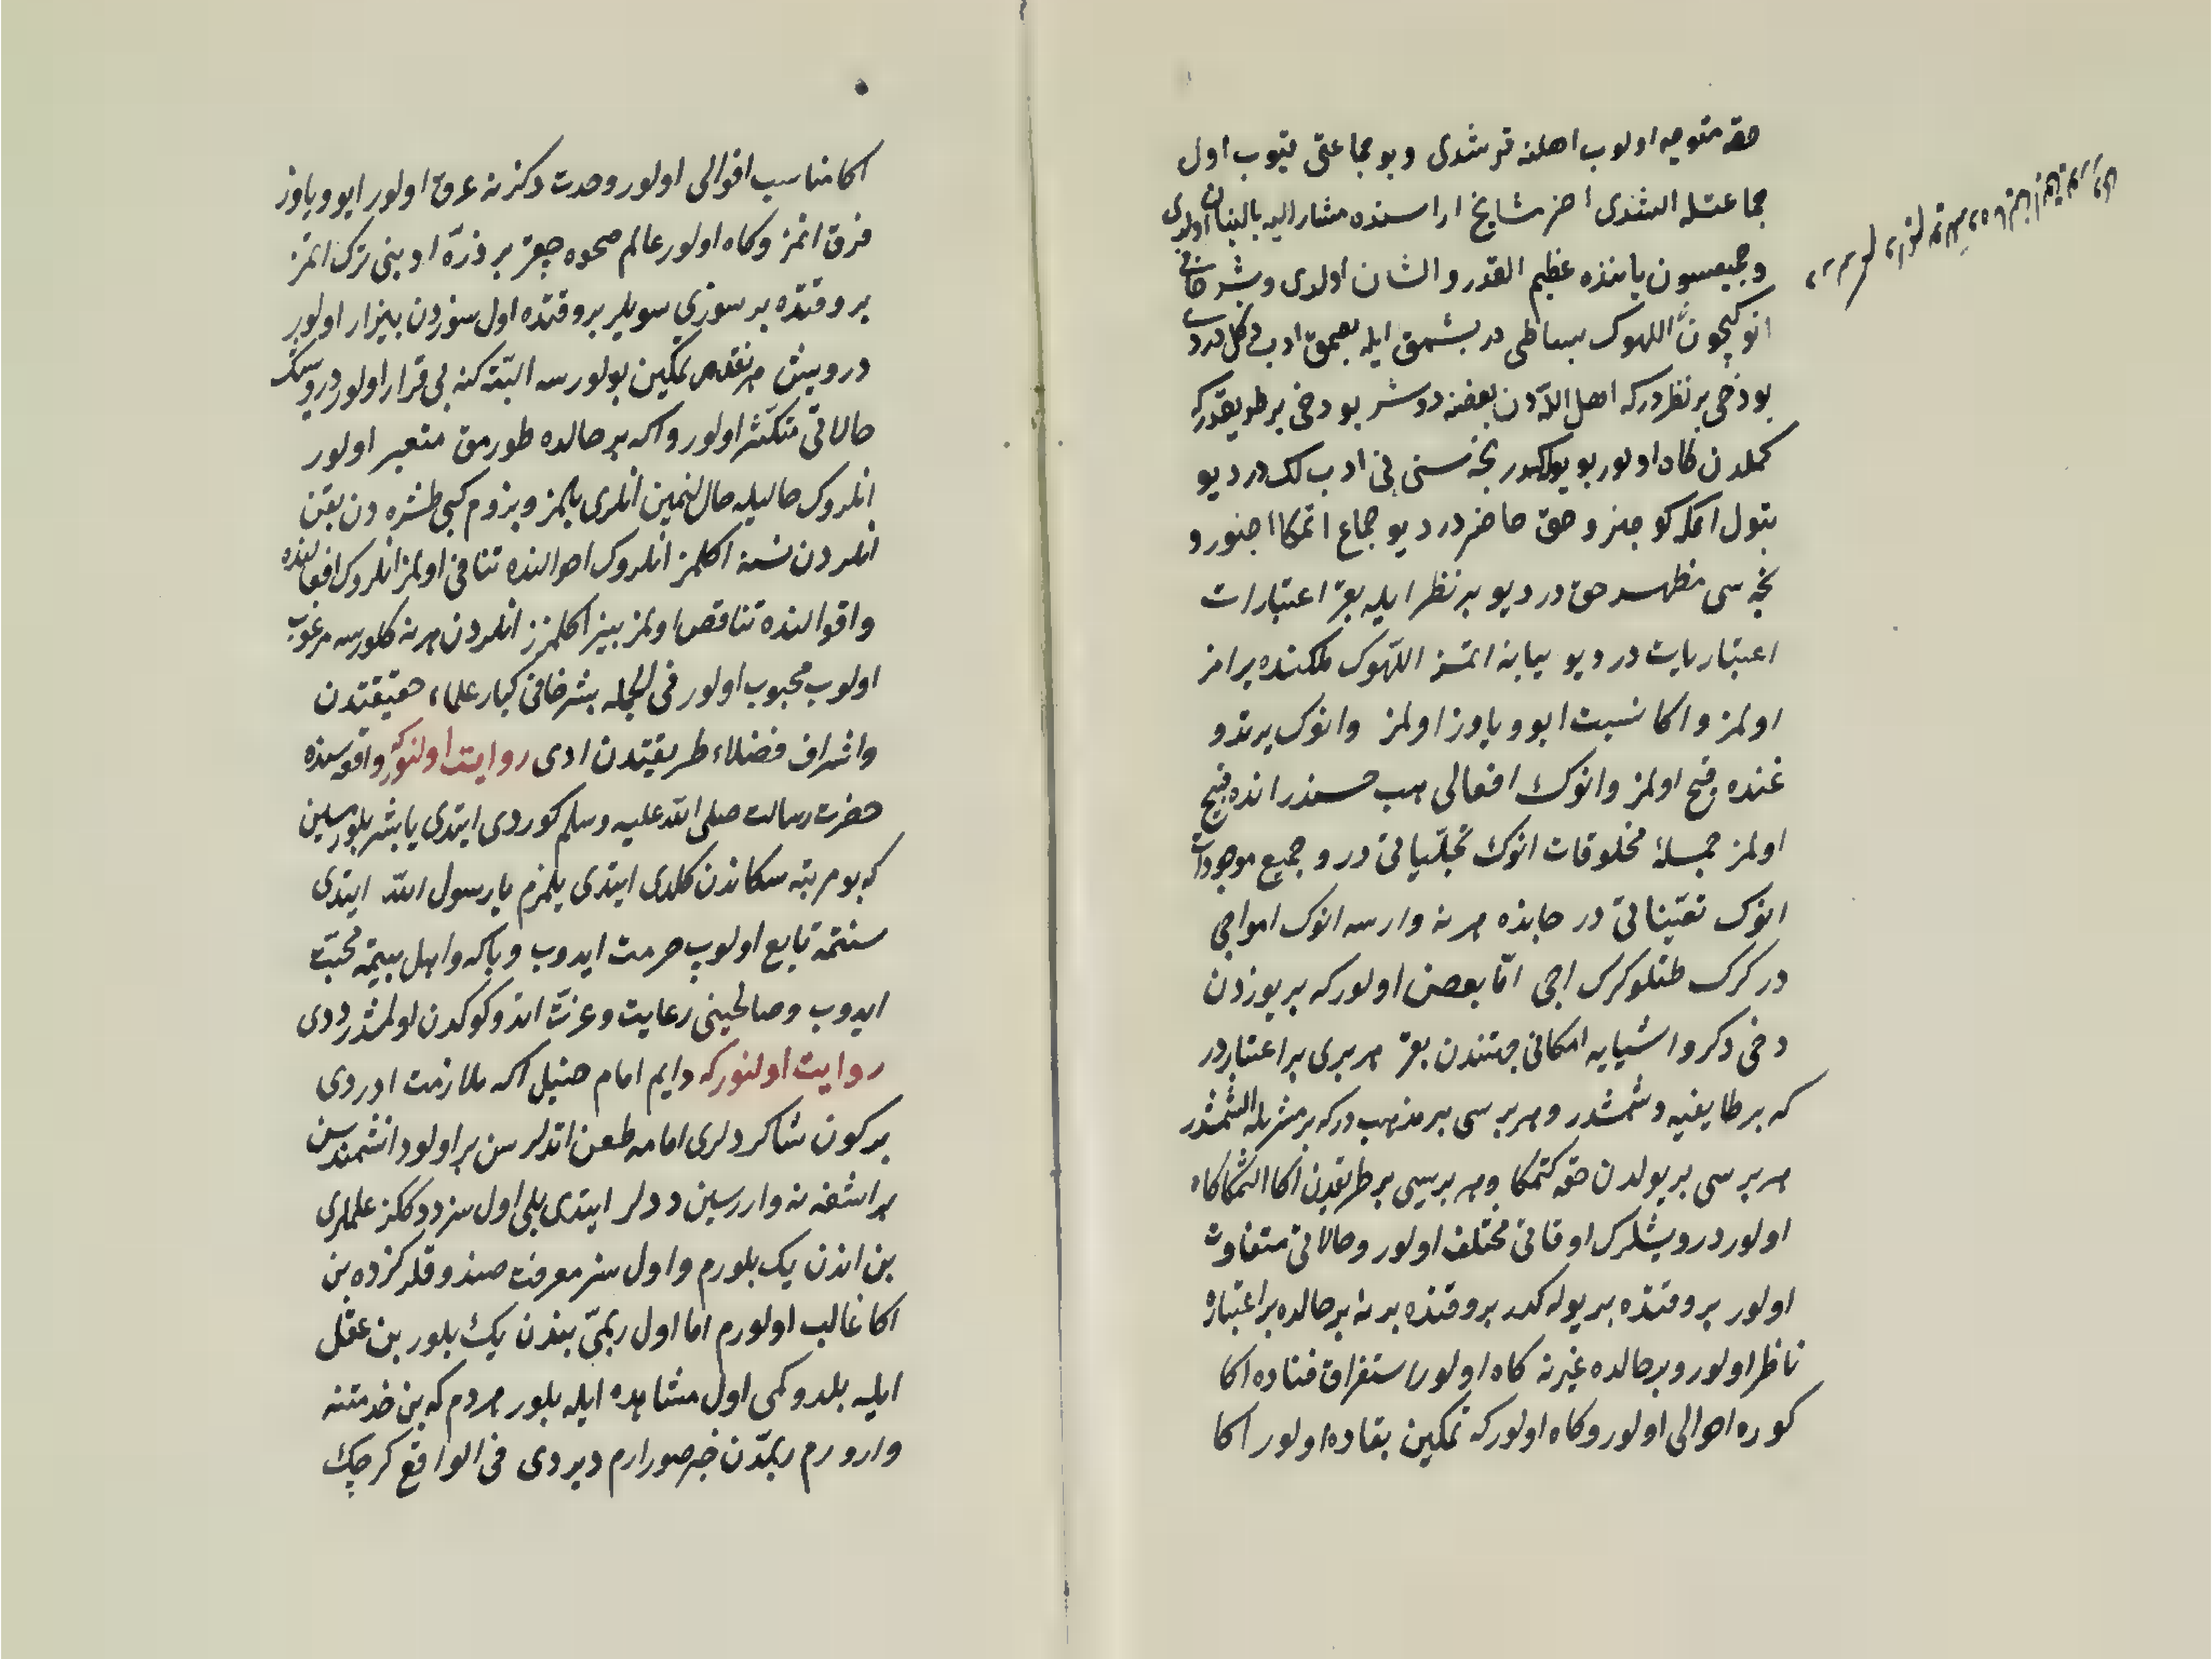 حقه متوجه اولوب اهلنه قرشدی وبو جماعتی قیوب اول
جماعتله الشدی آخر مشایخ اراسنده مشار الیه بالبنان اولدی
وجمیعسون یاننده عظیم القدر والشان اولدی وبشر حافی
انوکچون اللهوک بساطی در بشمق ایله بصمق ادب دکل دردی
بو دخی بر نظردرکه اهل اللّٰه دن بعضنه دوشر بو دخی بر طریقدرکه
کملدن کاه اولور بو یوله کدر نجه سنی بی ادب لک در دیو
بتول اتمکه کوجنر و حق حاضر در دیو جماع اتمکا اجنور و
نجه سی مظهر حق در دیو بر نظر ایله بقر اعتبارات
اعتباریات در دیو بیابنه اتمز اللّٰهوک ملکنده یرامز
اولمز و اکا نسبت ایو ویاوز اولمز وانوک یرتدو
غنده قبیح اولمز وانوک افعالی هب حسندر انده قبیح
اولمز جملۀ مخلوقات انوک تجلّیاتی در و جمیع موجودات
انوک تعیّناتی در جابذه هر نه وارسه انوک امواجی
در کرک طتلو کرک اجی امّا بعضی اولورکه بر یوزدن
دخی دکر و اشیایه امکانی جهتندن بقر هر بری بر اعتباردر
که بر طایفیه دشمشدر و هر برسی بر مذهب درکه بر مشربله الشمشدر
هر برسی بر یولدن حقه کتمکا و هر بریسی بر طریقدن اکا التمکا کاه
اولور درویشلرک اوقاتی مختلف اولور وحالاتی متفاوت
اولور بر وقتده بر یوله کدر بر وقتده بر نه بر حالده بر اعتباره
ناظر اولور وبر حالده غیرنه کاه اولور استغراق فناده اکا
کوره احوالی اولور وکاه اولورکه تمکین بقاده اولور اکا
اکا مناسب اقوالی اولور وحدت دکزنه غرق اولور ایو ویاوز
فرق اتمز وکاه اولور عالم صحوه چقر بر ذرّه ادبنی ترک اتمز
بر وقتده بر سوزی سویلر بر وقتده اول سوزدن بیزار اولور
درویش هر نقدر تمکین بولورسه البتّه کنه بی قرار اولور درویشک
حالاتی متکثر اولور واکه بر حالده طورمق متعبر اولور
انلروک حالیله حاللنمین انلری بلمز وبزوم کبی طشره دن بقن
انلردن نسنه اکلمز انلروک احوالنده تنافی اولمز انلروک افعالنده
واقوالنده تناقص اولمز بیز اکلمزز انلردن هر نه کلورسه مرغوب
اولوب محبوب اولور فی الجمله بشر حافی کبار علماء حقیقتدن
واشراف فضلاء طریقتدن ادی روایت اولنورکه واقعه سنده
حضرت رسالت صلی اللّٰه علیه وسلم کوردی ایتدی یا بشر بلورمیسین
که بو مرتبه سکا ندن کلدی ایتدی بلمزم یا رسول اللّٰه ایتدی
سنتمه تابع اولوب حرمت ایدوب وباکه واهل بیتمه محبّت
ایدوب وصالحینی رعایت وعزت اتدوکوکدن اولمشدر ددی
روایت اولنورکه دایم امام حنبل اکه ملازمت ادردی
بر کون شاکردلری امامه طعن اتدلر سن بر اولو دانشمندسن
بر اشفته نه واررسین ددلر ایتدی بلی اول سز ددککز علملری
بن اندن یک بلورم واول سز معرفت صندوقلرکزده بن
اکا غالب اولورم اما اول ربّمی بندن یک بلور بن عقل
ایله بلدوکمی اول مشاهده ایله بلور هر دم که بن خدمتنه
وارورم ربّمدن خبر صورارم دیردی فی الواقع کرچک